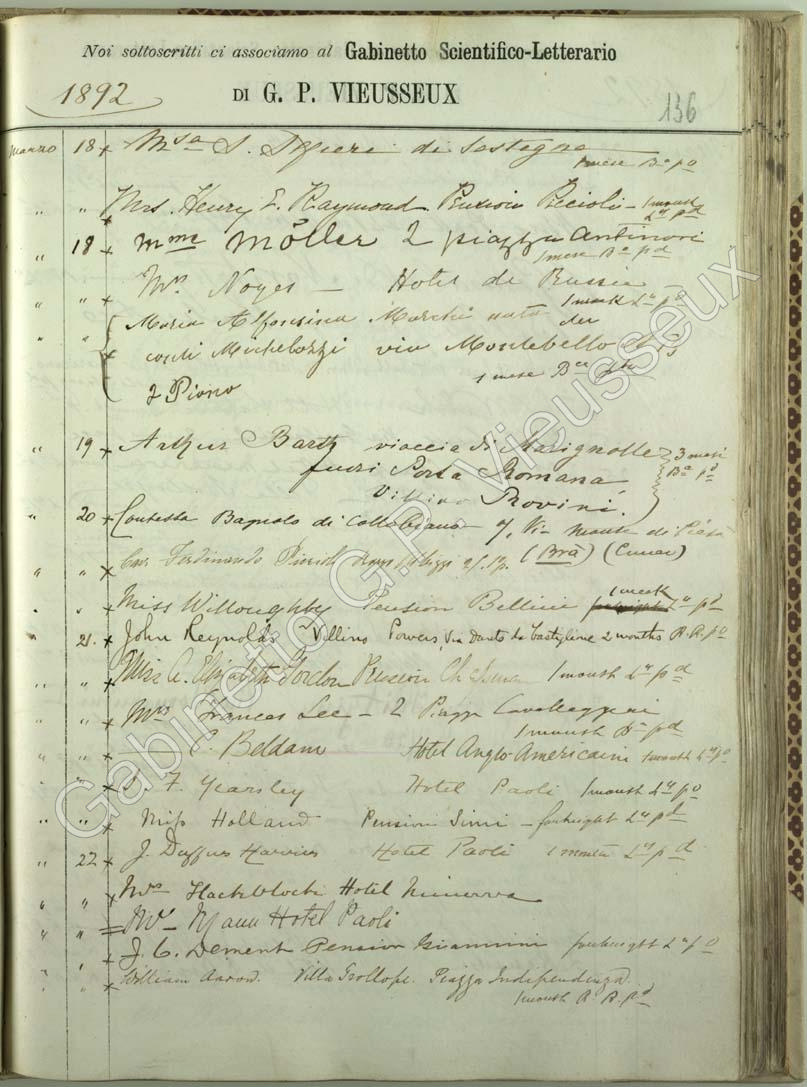 Noi sottoscritti ci associamo al Gabinetto Scientifico-Letterario
1892 DI G. P. VIEUSSEUX 136
Marzo 18 x di Sostegno
1 mese Ba po
" " x Mrs. Henry E. Raymond Pension Piccioli - 1 month
La pd
" 18 x Mme Möller 2 piazza Antinori
1 mese Ba pd
" " x Noyes - Hotel de Russie -
1 month La po
" " Maria Alfonsina Marchi nata
dei
x conti Michelozzi via Montebello
2 Piano 1 mese
" 19 x Arthur Barth viaccia di Marignolle 3 mesi
fuori Porta Romana Ba pd
Villino Rovini.
" 20 x Contessa Bagnolo di Collobiano - 7, Via Monte di Pietà
" " x Cav. Ferdinando (Brà) (Cuneo)
" " x Miss Willoughby Pension Bellini 1 week La pd
" 21. x John Reynolds Villino Powers, Via Dante da Castiglione 2 months
" " x Miss A. Elizabeth Gordon Pension 1 month La pd
" " x Mrs Frances Lee - 2 Piazza Cavalleggeri
1 month Ba pd
" " x C. Beldam Hotel Anglo-Americain 1 month La po
" " x J. F. Yearsley Hotel Paoli 1 month La po
" " x Miss Holland Pension Simi - fortnight La pd
" 22 x J. Duffus Harris Hotel Paoli 1 month La pd
" " x Mrs Hackblock Hotel Minerva
" " Hotel Paoli
" " x J. C. Dement Pension Giannini fortnight La po
" " x William Aaron. Villa Trollope. Piazza Indipendenza.
1 month
Gabinetto G.P. Vieusseux